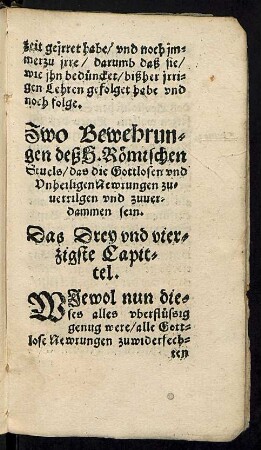 zeit geirret habe/ vnd noch jm-
merzu jrre/ darumb daß sie/
wie jhn bedüncket/ bißher jrri-
gen Lehren gefolget habe vnd
noch folge.
Zwo Bewehrun-
gen deß H. Römischen
Stuels/ das die Gottlosen vnd
Vnheiligen Newrungen zu-
uertilgen vnd zuuer-
dammen sein.
Das Drey vnd vier-
zigste Capit-
tel.
WJewol nun die-
ses alles vberflüssig
genug were/ alle Gott-
lose Newrungen zuwiderfech-
ten